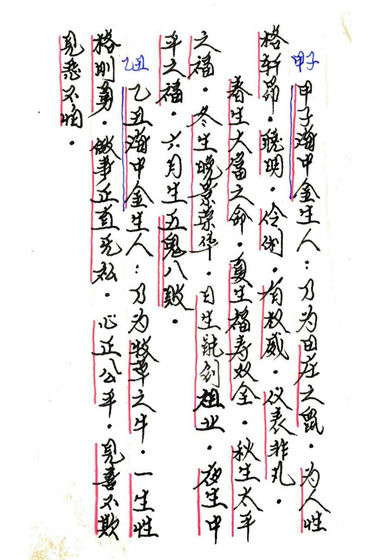 甲子
甲子海中金生人：乃为田庄之鼠。为人性
格轩昂。聪明。伶俐。有权威。仪表非凡。
春生大富之命。夏生福寿双全。秋生太平
之福。冬生晚景荣华。日生能创祖业。夜生中
平之福。六月生五鬼八败。
乙丑
乙丑海中金生人：乃为牧草之牛。一生性
格刚勇。做事正直无私。心正公平。见喜不欺
见恶不怕。